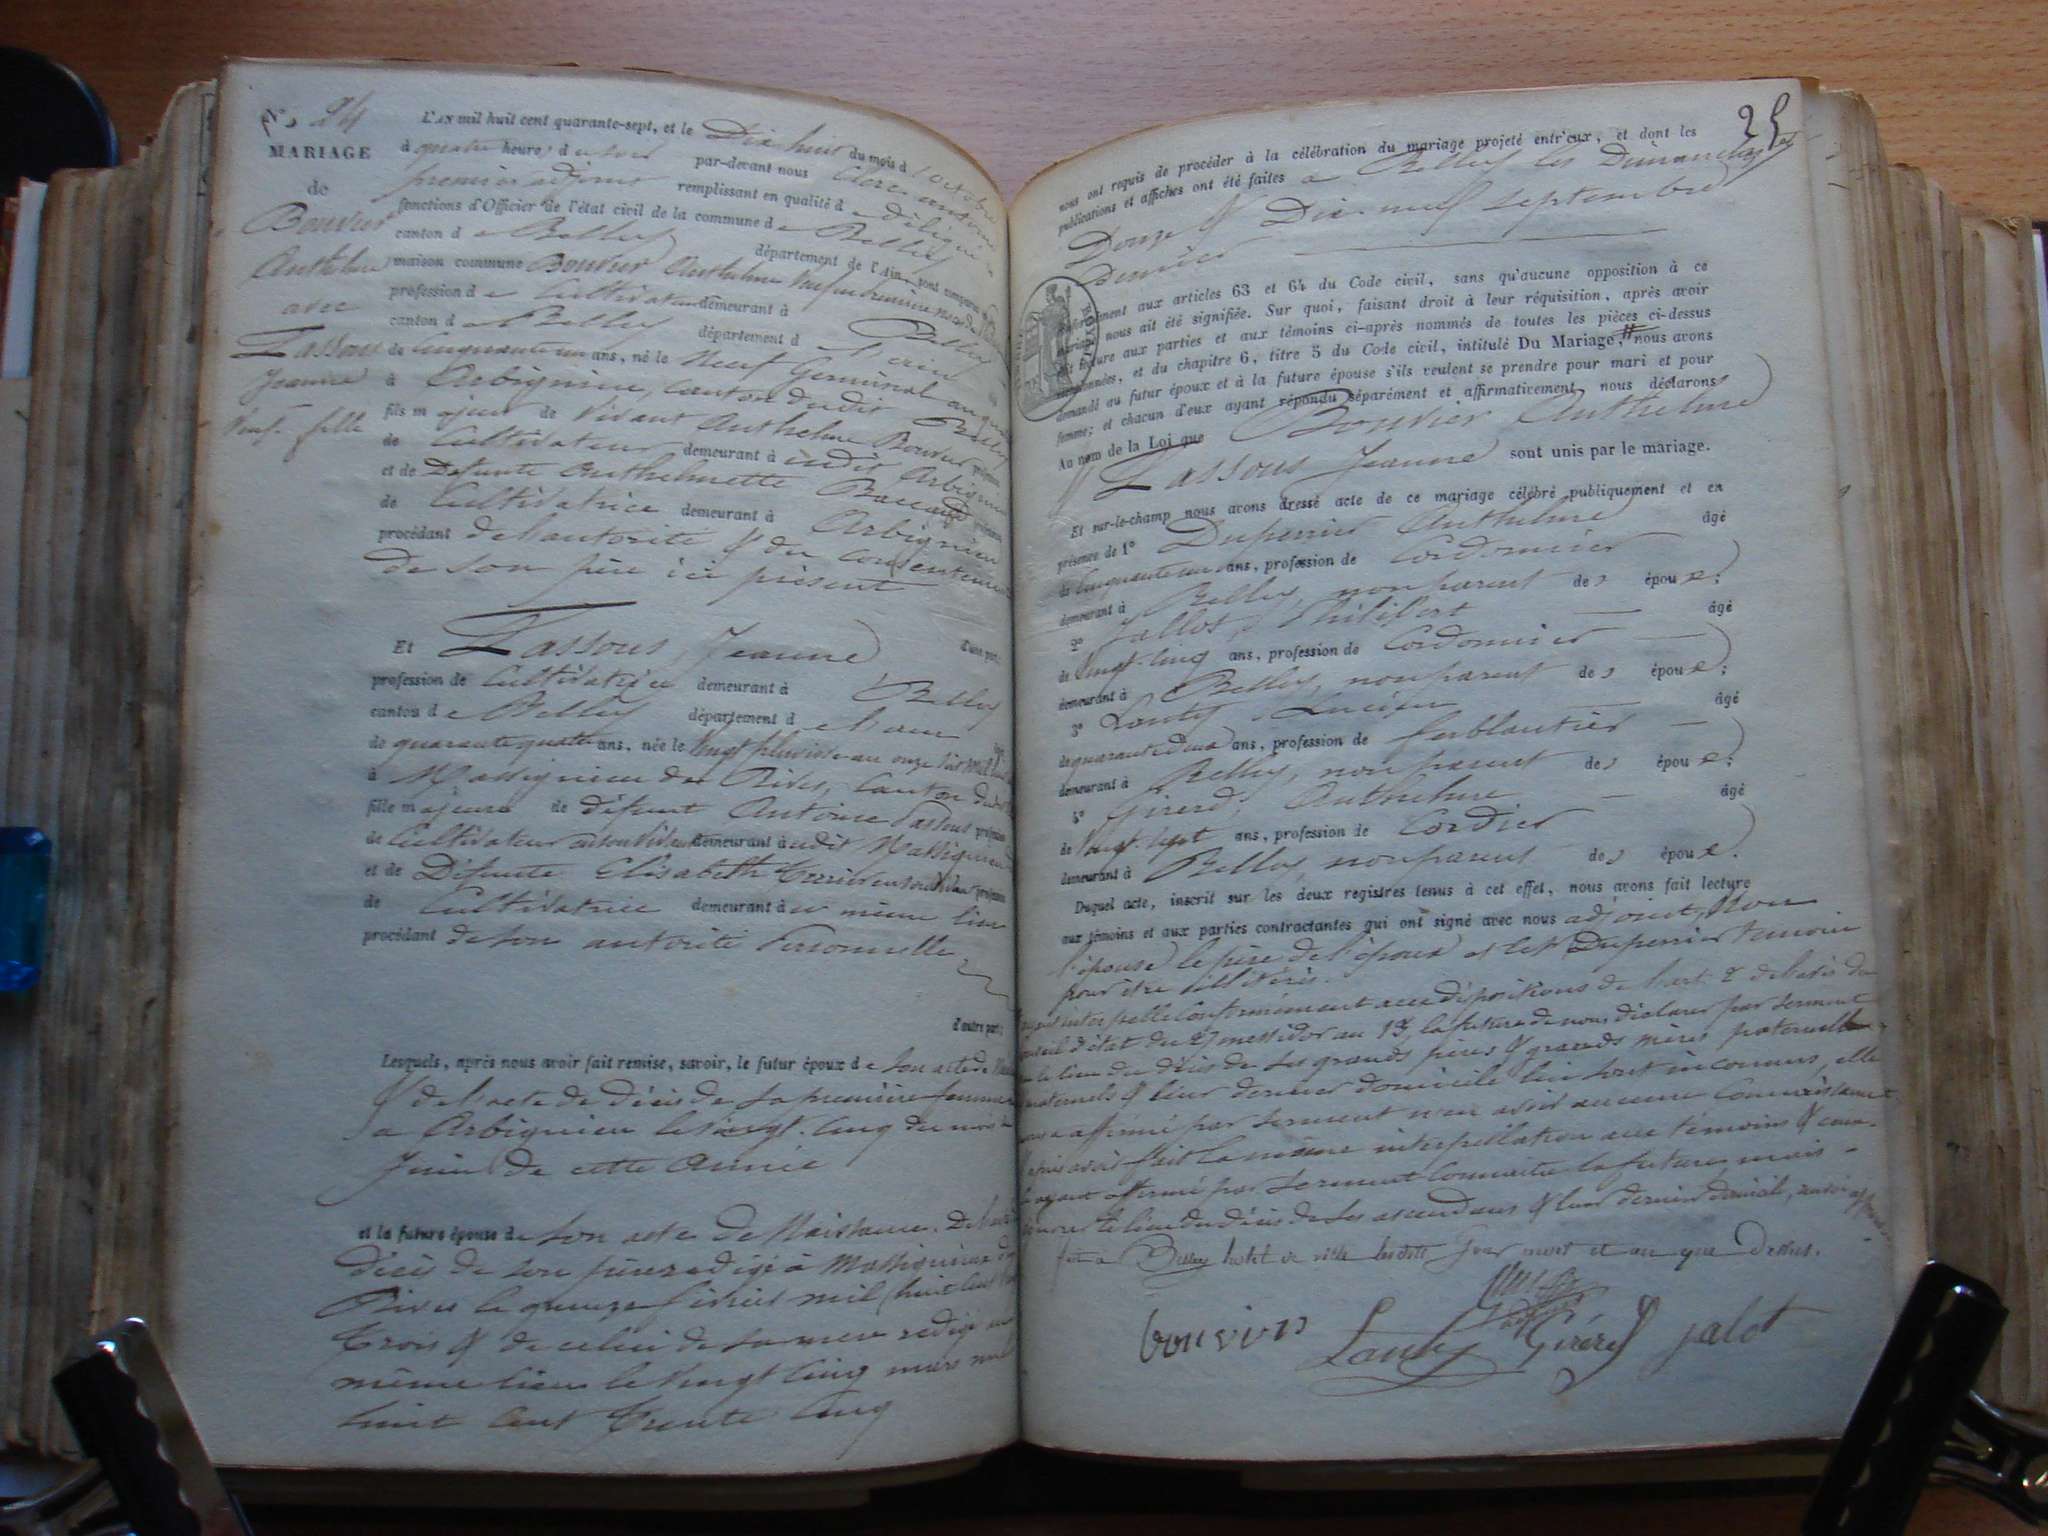 N° 24
MARIAGE
de
Bouvier
Anthelme
avec
Lassous
Jeanne
Veuf. fille
L'AN mil huit cent quarante-sept, et le Dix huit du mois d'octobre
à quatre heures du soir par-devant nous
premier adjoint remplissant en qualité de délégué
fonctions d'Officier de l'état civil de la commune de Belley
canton de Belley département de l'Ain, sont comparus
maison commune Bouvier Anthelme
profession de Cultivateur demeurant à Belley
canton de Belley département de l'ain
de Cinquante un ans, né le Neuf Germinal an
à Arbignieu, canton dudit Belley
fils majeur de vivant Anthelme Bouvier
de Cultivateur demeurant à udit Arbignieu
et de Défunte Anthelmette
de Cultivatrice demeurant à Arbignieu
procédant de l'autorité & du consentement
de son père ici présent
d'une part;
Et Lassous, Jeanne
profession de Cultivatrice demeurant à Belley
canton de Belley département de l'ain
de quarante quatre ans, née le Vingt pluviose an onze
à Massignieu de Rives, Canton dudit
fille majeure de défunt Antoine Lassous
de Cultivateur en son vivant demeurant à udit Massignieu
et de Défunte Elisabeth en son vivant profession
de Cultivatrice demeurant à u même lieu
procédant de son autorité Personnelle
d'autre part;
Lesquels, après nous avoir fait remise, savoir, le futur époux de son acte de
& de l'acte de décès de sa première femme
à Arbignieu le vingt-cinq du mois de
Juin de cette Année
et la future épouse de son acte de Naissance. De
décès de son père redigé à Massignieu de
Rives le quinze février mil huit cent
trois & de celui de sa mère redigé au
même lieu le vingt cinq mars mil
huit cent trente cinq
25
nous ont requis de procéder à la célébration du mariage projeté entr'eux, et dont les
publications et affiches ont été faites à Belley les Dimanches
Douze & Dix-neuf septembre
Dernier
Conformément aux articles 63 et 64 du Code civil, sans qu'aucune opposition à ce
mariage nous ait été signifiée. Sur quoi, faisant droit à leur réquisition, après avoir
fait lecture aux parties et aux témoins ci-après nommés de toutes les pièces ci-dessus
mentionnées, et du chapitre 6, titre 5 du Code civil, intitulé Du Mariage, nous avons
demandé au futur époux et à la future épouse s'ils veulent se prendre pour mari et pour
femme; et chacun d'eux ayant répondu séparément et affirmativement, nous déclarons
Au nom de la Loi que Bouvier Anthelme
& Lassous Jeanne sont unis par le mariage.
Et sur-le-champ nous avons dressé acte de ce mariage célébré publiquement et en
présence de 1° Duperrier Anthelme âgé
de Cinquante un ans, profession de Cordonnier
demeurant à Belley, non parent des époux;
2° Jallot, Philibert âgé
de vingt-cinq ans, profession de Cordonnier
demeurant à Belley, non parent des époux;
3° Lanty, âgé
de quarante deux ans, profession de ferblantier
demeurant à Belley, non parent des époux;
4° Girerd, Anthelme âgé
de vingt-sept ans, profession de Cordier
demeurant à Belley, non parent des époux.
Duquel acte, inscrit sur les deux registres tenus à cet effet, nous avons fait lecture
aux témoins et aux parties contractantes qui ont signé avec nous adjoint, Non
l'épouse, le père de l'époux et led. Duperrier témoin
pour être illiterés.
interpellé Conformément aux dispositions de l'art. 2 de l'avis du
conseil d'état du 27 messidor an 13, la future de nous déclarer par serment
le lieu du décès de ses grands pères & grands mères paternelle
maternels & leur dernier domicile lui sont inconnus, elle
a affirmé par serment n'en avoir aucune Connaissance
après avoir fait la même interpellation aux témoins & ceux-
ci ayant affirmé par serment Connaitre la future, mais
ignorer le lieu du décès de ses ascendans & leur dernier domicile,
fait à Belley hotel de ville lesdits Jour mois et an que Dessus.
bouvier Lanty Girerd jalot